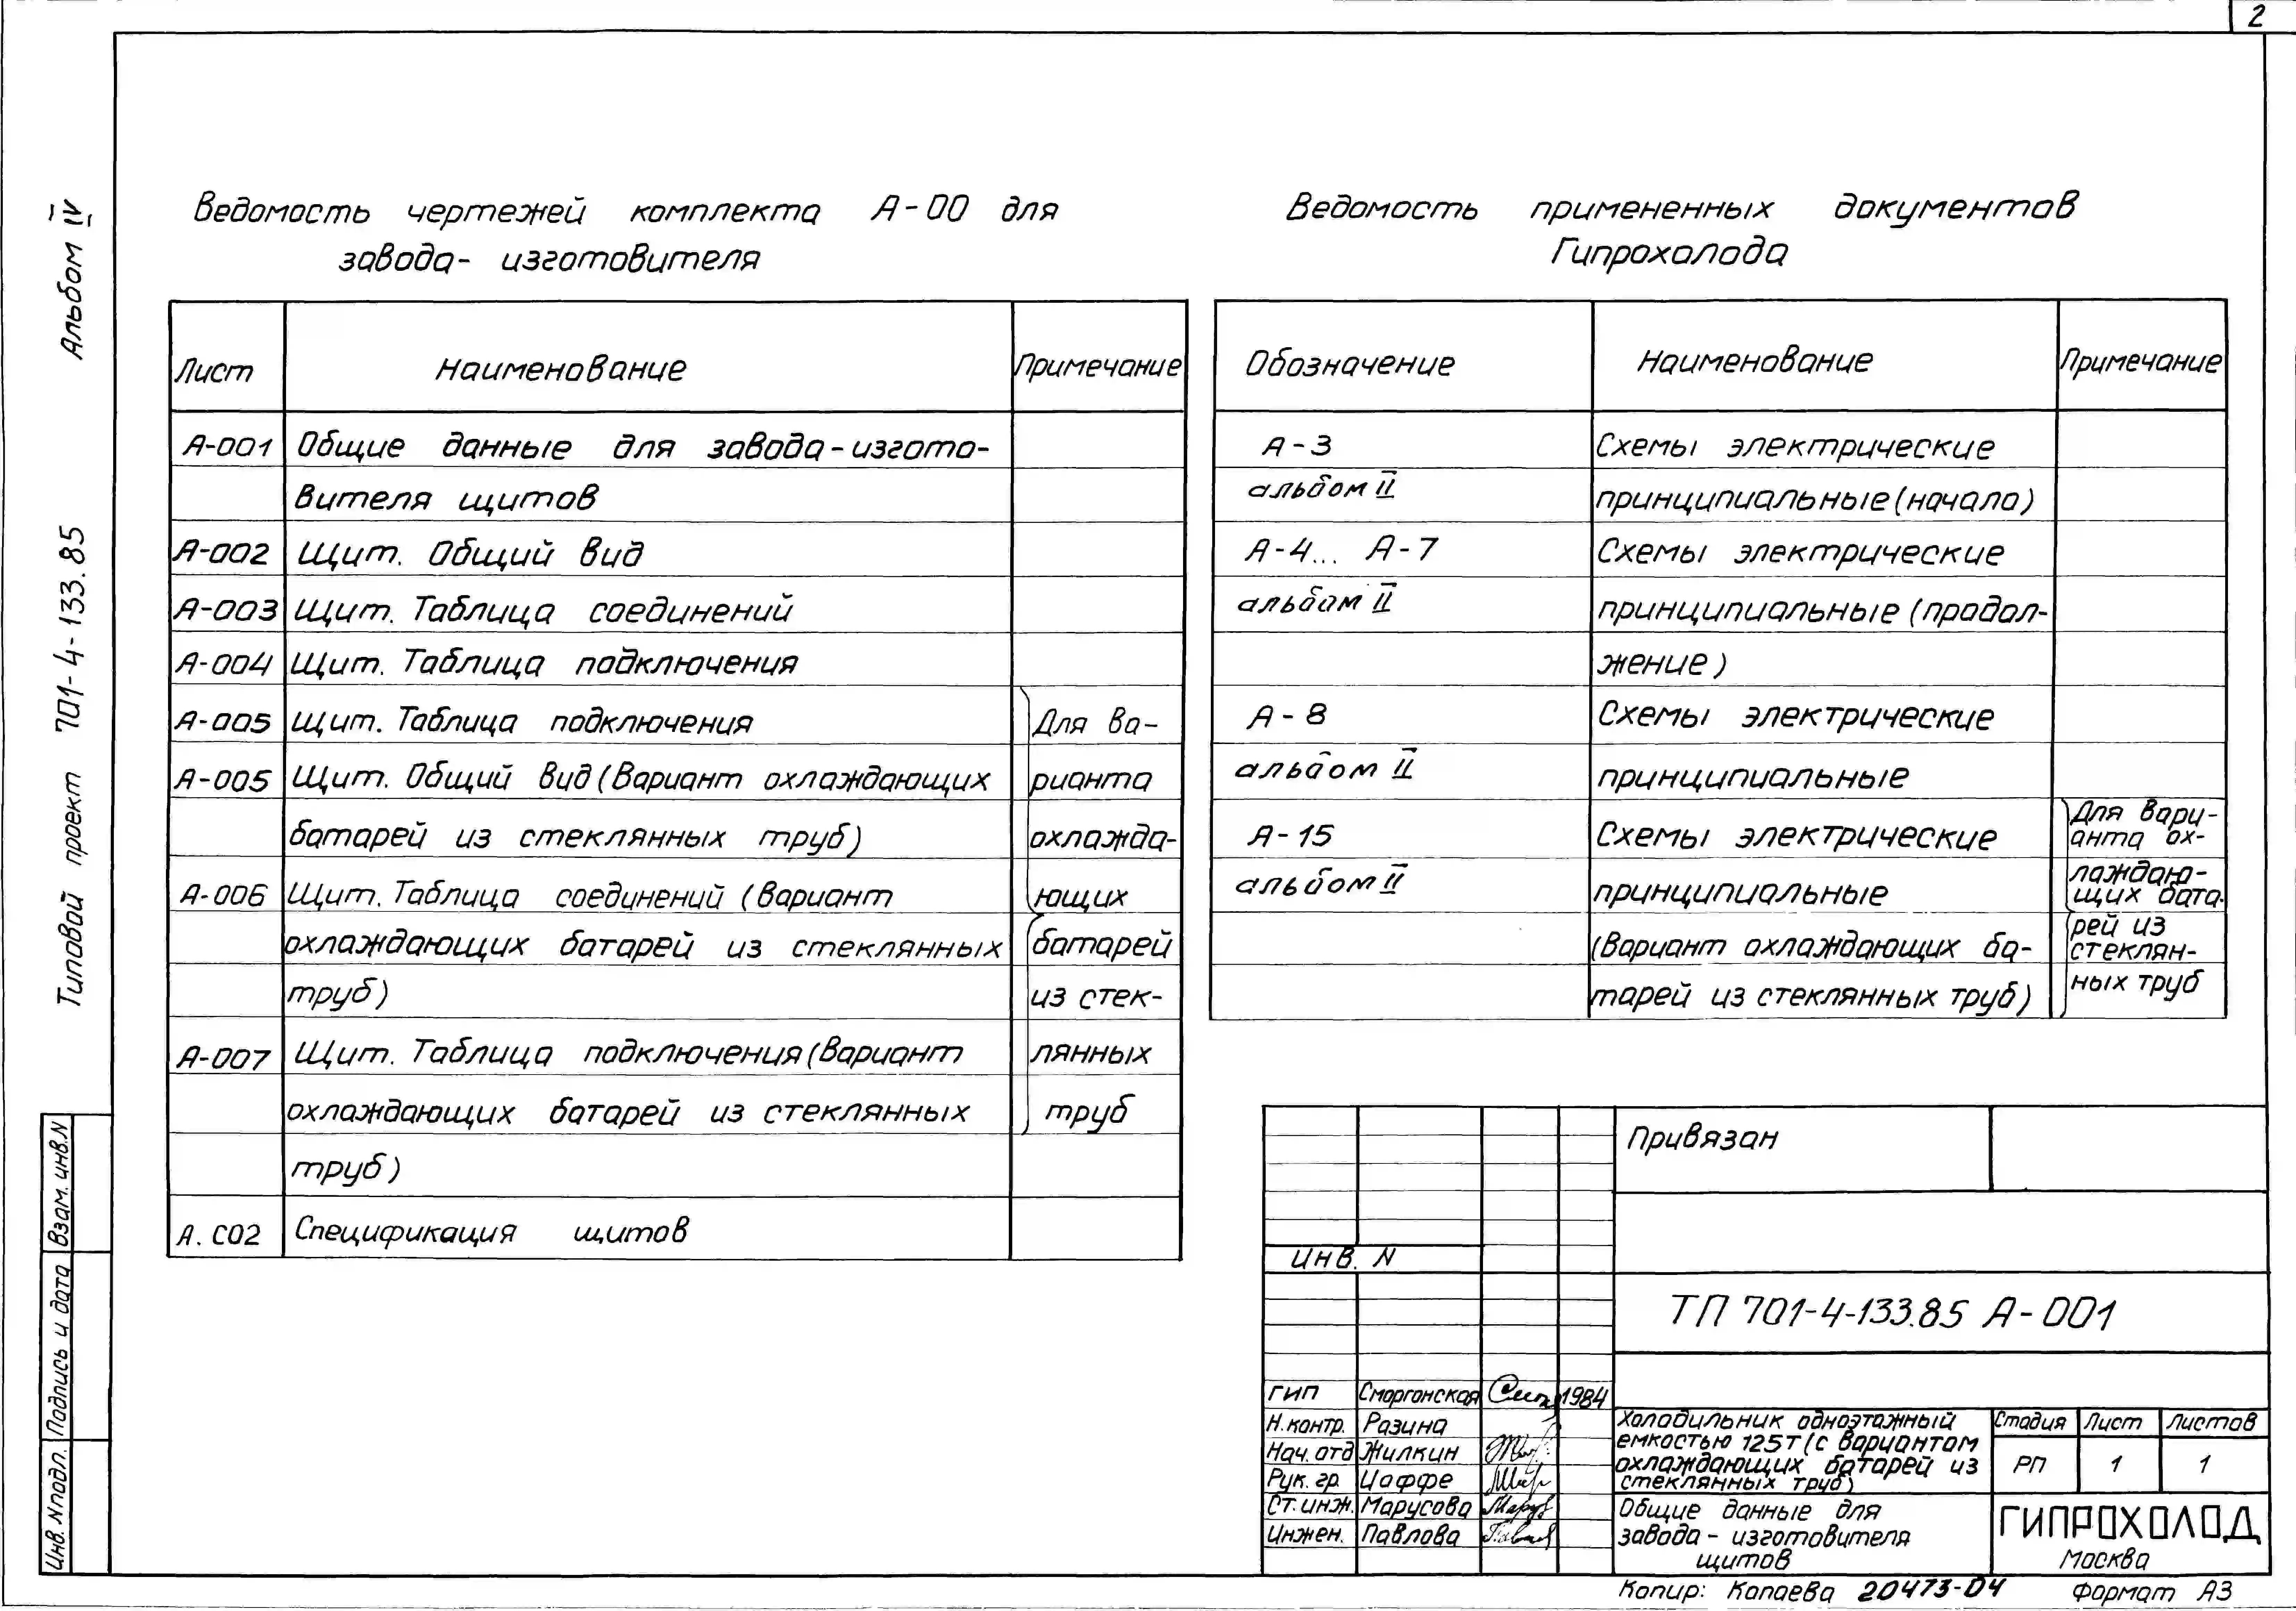 2
Альбом IV
Типовой проект 701-4-133.85
Взам. инв.N
Подпись и дата
Инв. Nподл.
Ведомость чертежей комплекта А-00 для
завода- изготовителя
Лист Наименование Примечание
А-001 Общие данные для завода-изгото-
вителя щитов
А-002 Щит. Общий вид
А-003 Щит. Таблица соединений
А-004 Щит. Таблица подключения
А-005 Щит. Таблица подключения Для ва-
А-005 Щит. Общий вид (Вариант охлаждающих рианта
батарей из стеклянных труб) охлажда-
А-006 Щит. Таблица соединений (Вариант ющих
охлаждающих батарей из стеклянных батарей
труб) из стек-
А-007 Щит. Таблица подключения (Вариант лянных
охлаждающих батарей из стеклянных труб
труб)
А. С02 Спецификация щитов
Ведомость примененных документов
Гипрохолода
Обозначение Наименование Примечание
А-3 Схемы электрические
альбом II принципиальные (начало)
А-4... А-7 Схемы электрические
альбом II принципиальные (продол-
жение)
А-8 Схемы электрические
альбом II принципиальные
А-15 Схемы электрические
альбом II принципиальные
(Вариант охлаждающих ба-
тарей из стеклянных труб)
Для вари-
анта ох-
лаждаю-
щих бата-
рей из
стеклян-
ных труб
Привязан
Инв. N
ТП 701-4-133.85 А-001
ГИП Сморгонская 1984
Н.контр. Разина
Нач. отд Жилкин
Рук. гр. Иоффе
Ст. инж. Марусова
Инжен. Павлова
Холодильник одноэтажный
емкостью 125т (с вариантом
охлаждающих батарей из
стеклянных труб)
Стадия Лист Листов
РП 1 1
Общие данные для
завода - изготовителя
щитов
ГИПРОХОЛОД
Москва
Копир: Капаева 20473-04 Формат А3